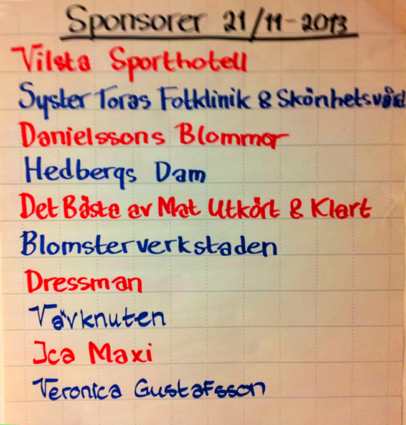 Sponsorer 21/11-2013
Vilsta Sporthotell
Syster Toras Fotklinik & Skönhetsvård
Danielssons Blommor
Hedbergs Dam
Det Bästa av Mat Utkört & Klart
Blomsterverkstaden
Dressman
Vävknuten
Ica Maxi
Veronica Gustafsson